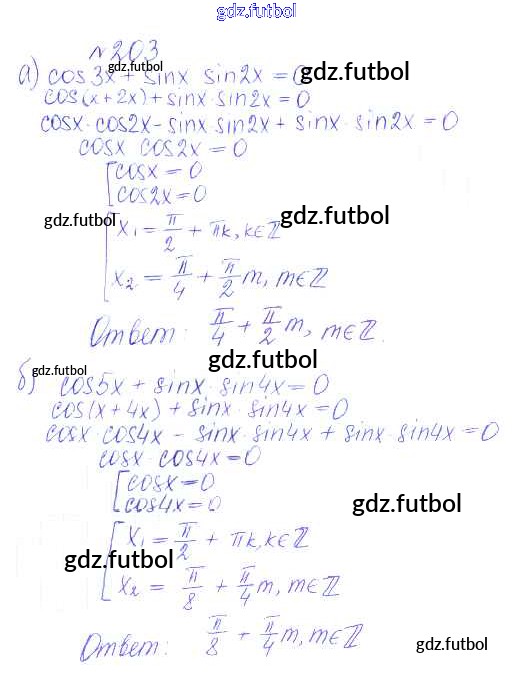 gdz.futbol
№203
gdz.futbol
а) cos3x + sinx sin2x = 0
gdz.futbol
cos(x+2x) + sinx · sin2x = 0
cosx · cos2x − sinx sin2x + sinx · sin2x = 0
cosx cos2x = 0
[ cosx = 0
cos2x = 0
gdz.futbol
gdz.futbol
[ x₁ = π/2 + πk, k∈ℤ
x₂ = π/4 + π/2 m, m∈ℤ
Ответ: π/4 + π/2 m, m∈ℤ.
gdz.futbol
gdz.futbol
б) cos5x + sinx · sin4x = 0
cos(x+4x) + sinx · sin4x = 0
cosx · cos4x − sinx · sin4x + sinx · sin4x = 0
cosx · cos4x = 0
[ cosx = 0
cos4x = 0
gdz.futbol
[ x₁ = π/2 + πk, k∈ℤ
gdz.futbol
x₂ = π/8 + π/4 m, m∈ℤ
Ответ: π/8 + π/4 m, m∈ℤ
gdz.futbol